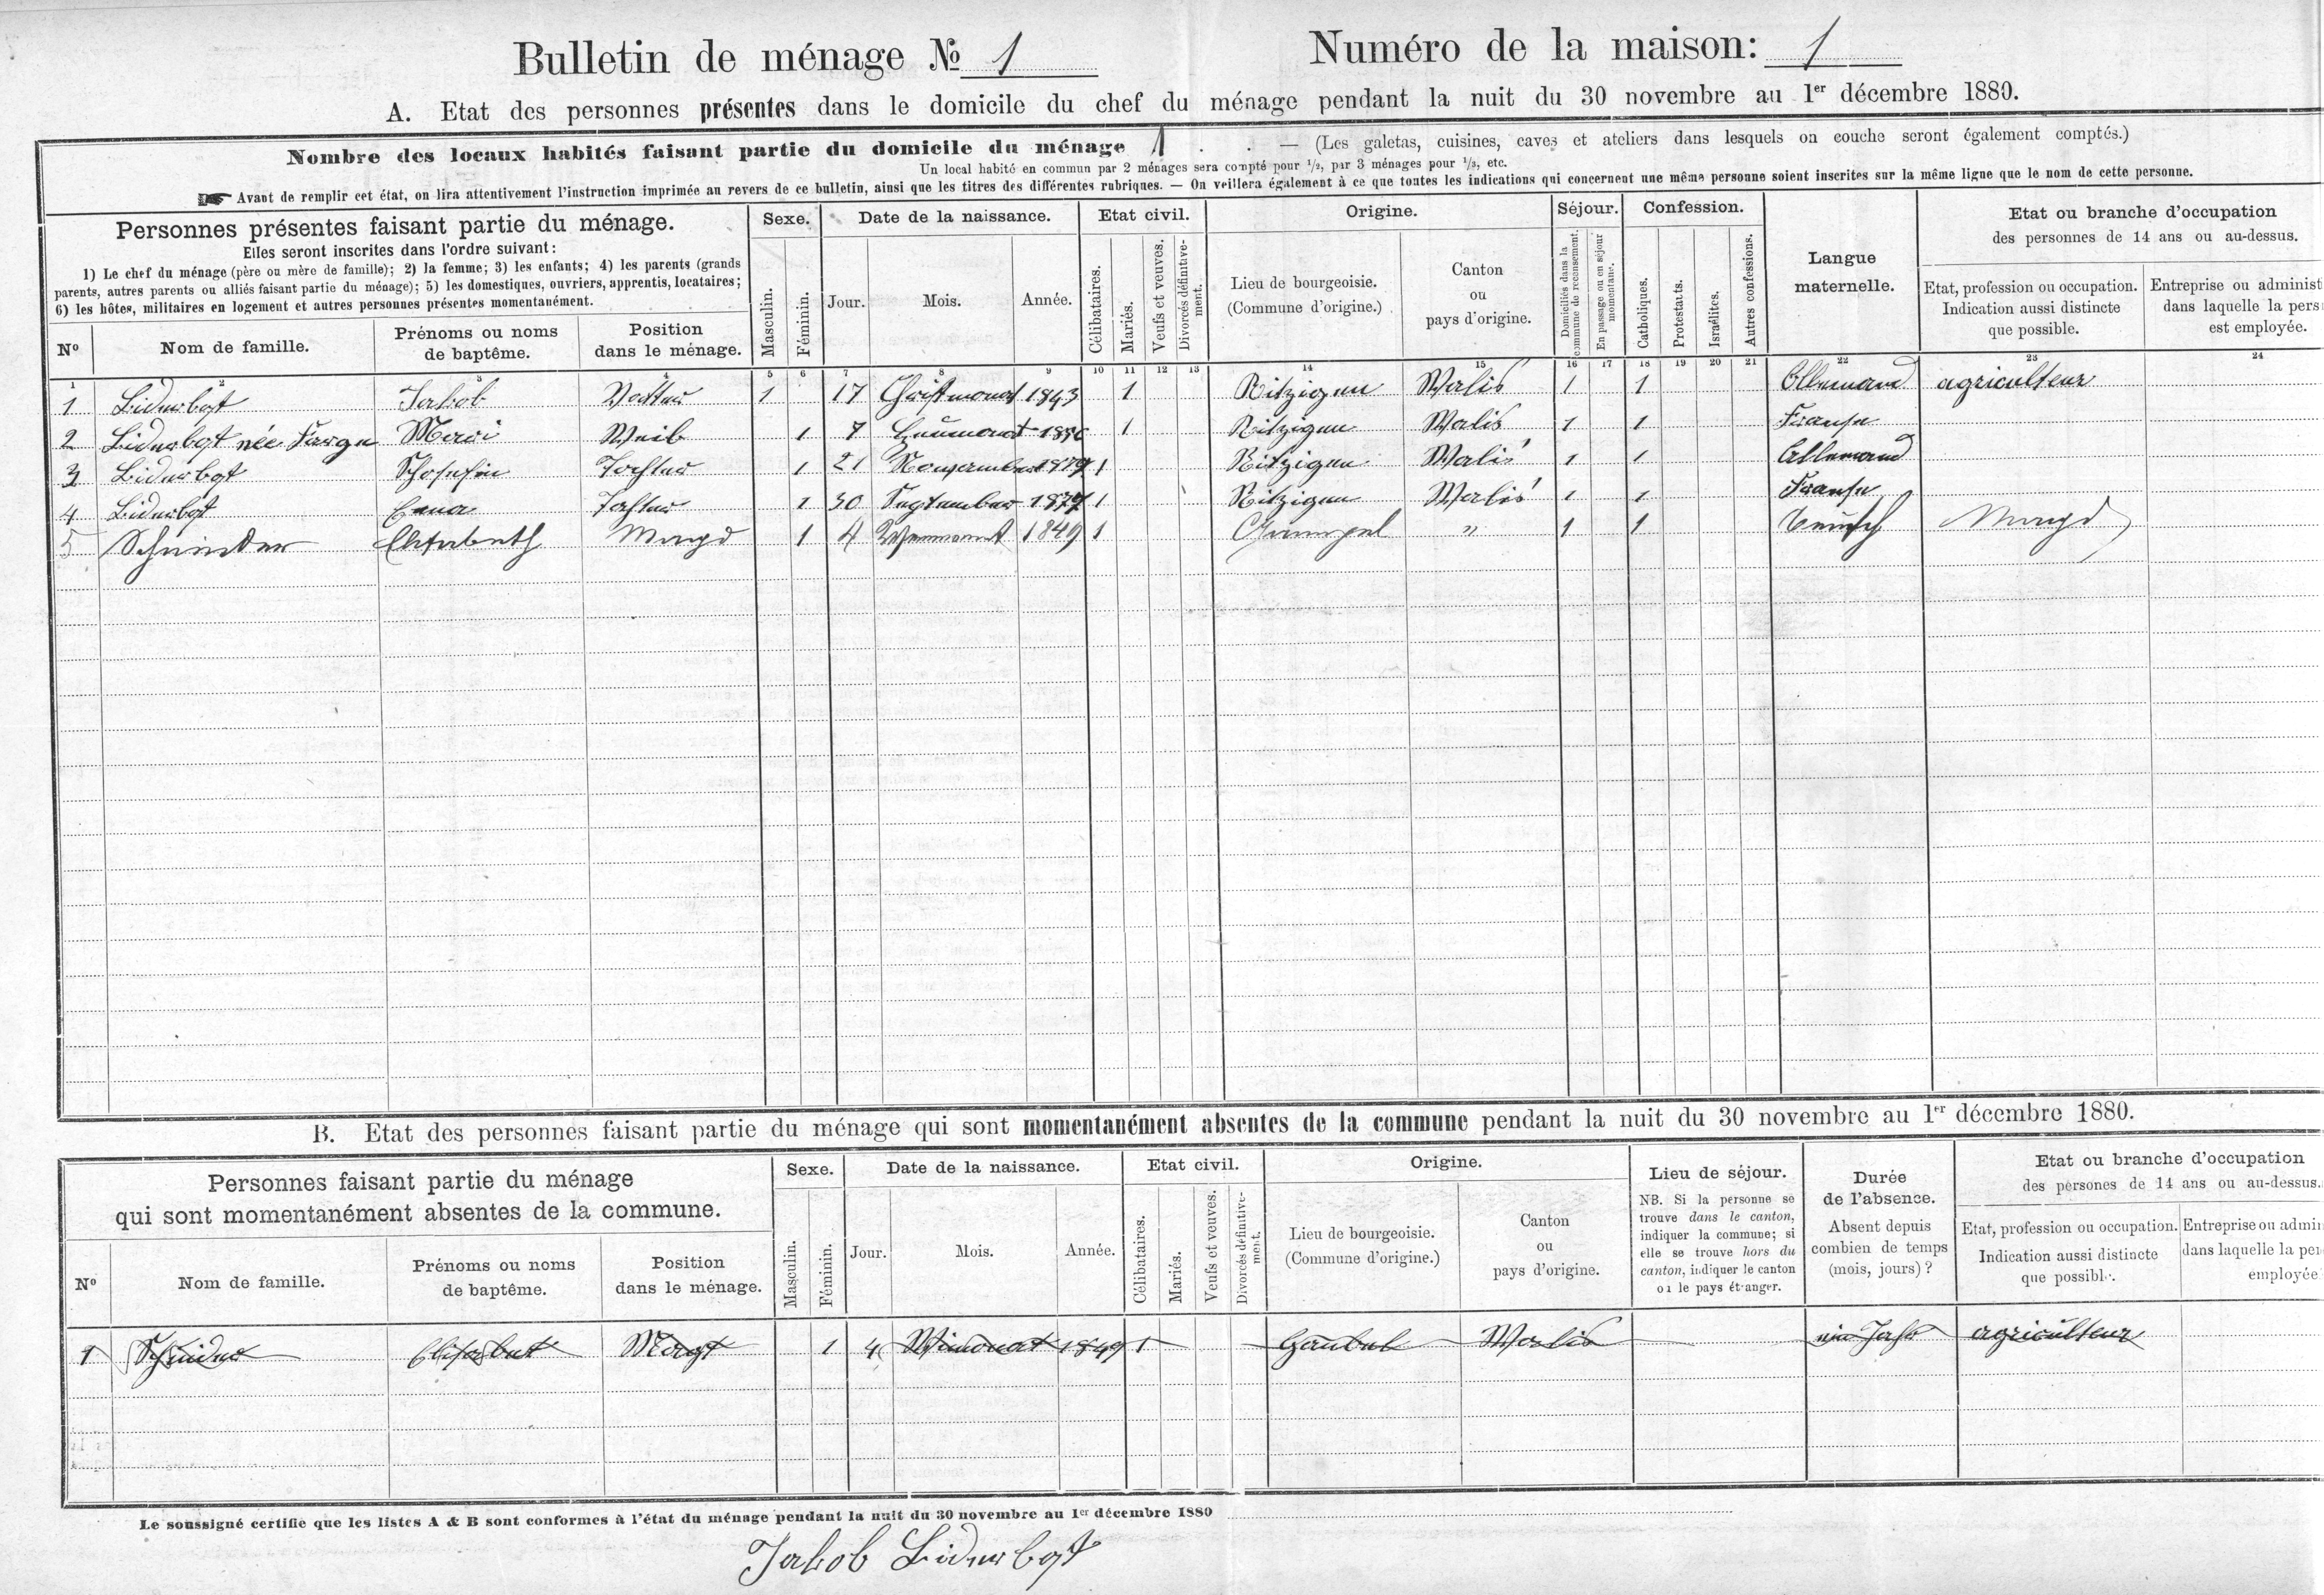 Bulletin de ménage No 1
Numéro de la maison: 1
A. Etat des personnes présentes dans le domicile du chef du ménage pendant la nuit du 30 novembre au 1er décembre 1880.
Nombre des locaux habités faisant partie du domicile du ménage 1 . . — (Les galetas, cuisines, caves et ateliers dans lesquels on couche seront également comptés.)
Un local habité en commun par 2 ménages sera compté pour 1/2, par 3 ménages pour 1/3, etc.
☛ Avant de remplir cet état, on lira attentivement l'instruction imprimée au revers de ce bulletin, ainsi que les titres des différentes rubriques. — On veillera également à ce que toutes les indications qui concernent une même personne soient inscrites sur la même ligne que le nom de cette personne.
Personnes présentes faisant partie du ménage.
Elles seront inscrites dans l'ordre suivant:
1) Le chef du ménage (père ou mère de famille); 2) la femme; 3) les enfants; 4) les parents (grands
parents, autres parents ou alliés faisant partie du ménage); 5) les domestiques, ouvriers, apprentis, locataires;
6) les hôtes, militaires en logement et autres personnes présentes momentanément.
No
Nom de famille.
Prénoms ou noms
de baptême.
Position
dans le ménage.
Sexe.
Masculin.
Féminin.
Date de la naissance.
Jour.
Mois.
Année.
Etat civil.
Célibataires.
Mariés.
Veufs et veuves.
Divorcés définitive-
ment.
Origine.
Lieu de bourgeoisie.
(Commune d'origine.)
Canton
ou
pays d'origine.
Séjour.
Domiciliés dans la
commune de recensement.
En passage ou en séjour
momentané.
Confession.
Catholiques.
Protestants.
Israélites.
Autres confessions.
Langue
maternelle.
Etat ou branche d'occupation
des personnes de 14 ans ou au-dessus.
Etat, profession ou occupation.
Indication aussi distincte
que possible.
Entreprise ou administ
dans laquelle la pers
est employée.
1 2 3 4 5 6 7 8 9 10 11 12 13 14 15 16 17 18 19 20 21 22 23 24
1 Biderbost Jakob 1 17 Christmonat 1843 1 Ritzigen Walis 1 1 Allemand agriculteur
2 Biderbost née Mari Weib 1 7 1 Ritzigen Walis 1 1
3 Biderbost Tochter 1 21 1879 1 Ritzigen Walis 1 1 Allemand
4 Biderbost Tochter 1 30 September 1877 1 Ritzigen Walis 1 1
5 Elisabeth Magd 1 4 1849 1 " 1 1 Magd
B. Etat des personnes faisant partie du ménage qui sont momentanément absentes de la commune pendant la nuit du 30 novembre au 1er décembre 1880.
Personnes faisant partie du ménage
qui sont momentanément absentes de la commune.
No
Nom de famille.
Prénoms ou noms
de baptême.
Position
dans le ménage.
Sexe.
Masculin.
Féminin.
Date de la naissance.
Jour.
Mois.
Année.
Etat civil.
Célibataires.
Mariés.
Veufs et veuves.
Divorcés définitive-
ment.
Origine.
Lieu de bourgeoisie.
(Commune d'origine.)
Canton
ou
pays d'origine.
Lieu de séjour.
NB. Si la personne se
trouve dans le canton,
indiquer la commune; si
elle se trouve hors du
canton, indiquer le canton
ou le pays étranger.
Durée
de l'absence.
Absent depuis
combien de temps
(mois, jours)?
Etat ou branche d'occupation
des persones de 14 ans ou au-dessus.
Etat, profession ou occupation.
Indication aussi distincte
que possible.
Entreprise ou admin
dans laquelle la per
employée
1 Schnider Elisabet Magt 1 4 1849 1 Walis ein Jahr agriculteur
Le soussigné certifie que les listes A & B sont conformes à l'état du ménage pendant la nuit du 30 novembre au 1er décembre 1880
Jakob Biderbost